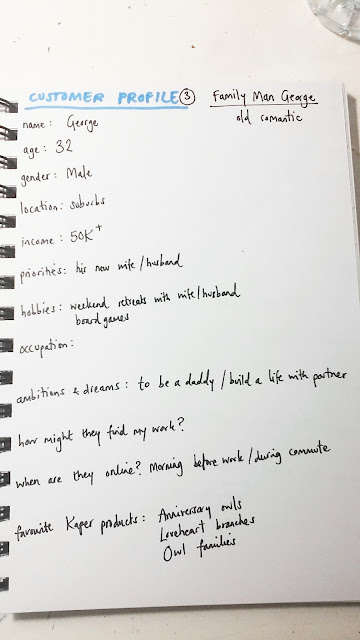 CUSTOMER PROFILE ③ Family Man George
old romantic
name: George
age: 32
gender: Male
location: suburbs
income: 50K+
priorities: his new wife/husband
hobbies: weekend retreats with wife/husband
board games
occupation:
ambitions & dreams: to be a daddy/build a life with partner
how might they find my work?
when are they online? Morning before work/during commute
favourite Kaper products: Anniversary owls
Loveheart branches
Owl families